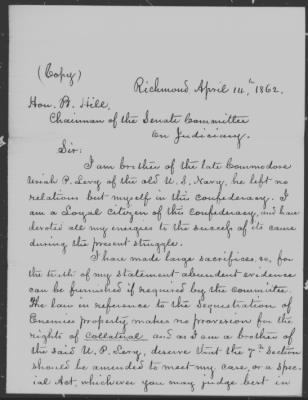 (Copy)
Richmond April 14th, 1862.
Hon. B. Hill,
Chairman of the Senate Committee
on Judiciary.
Sir:
I am brother of the late Commodore
Uriah P. Levy of the old U. S. Navy, he left no
relations but myself in this confederacy. I
am a Loyal citizen of the confederacy, and have
devoted all my energies to the success of its cause
during the present struggle.
I have made large sacrifices, &c, for
the truth of my statement abundent evidence
can be furnished if required by the committee.
The law in reference to the Sequestration of
Enemies property, makes no provision for the
rights of collateral and as I am a brother of
the said U. P. Levy, deserve that the 7th Section
should be amended to meet my case, or a Spec-
ial Act, whichever you may judge best in